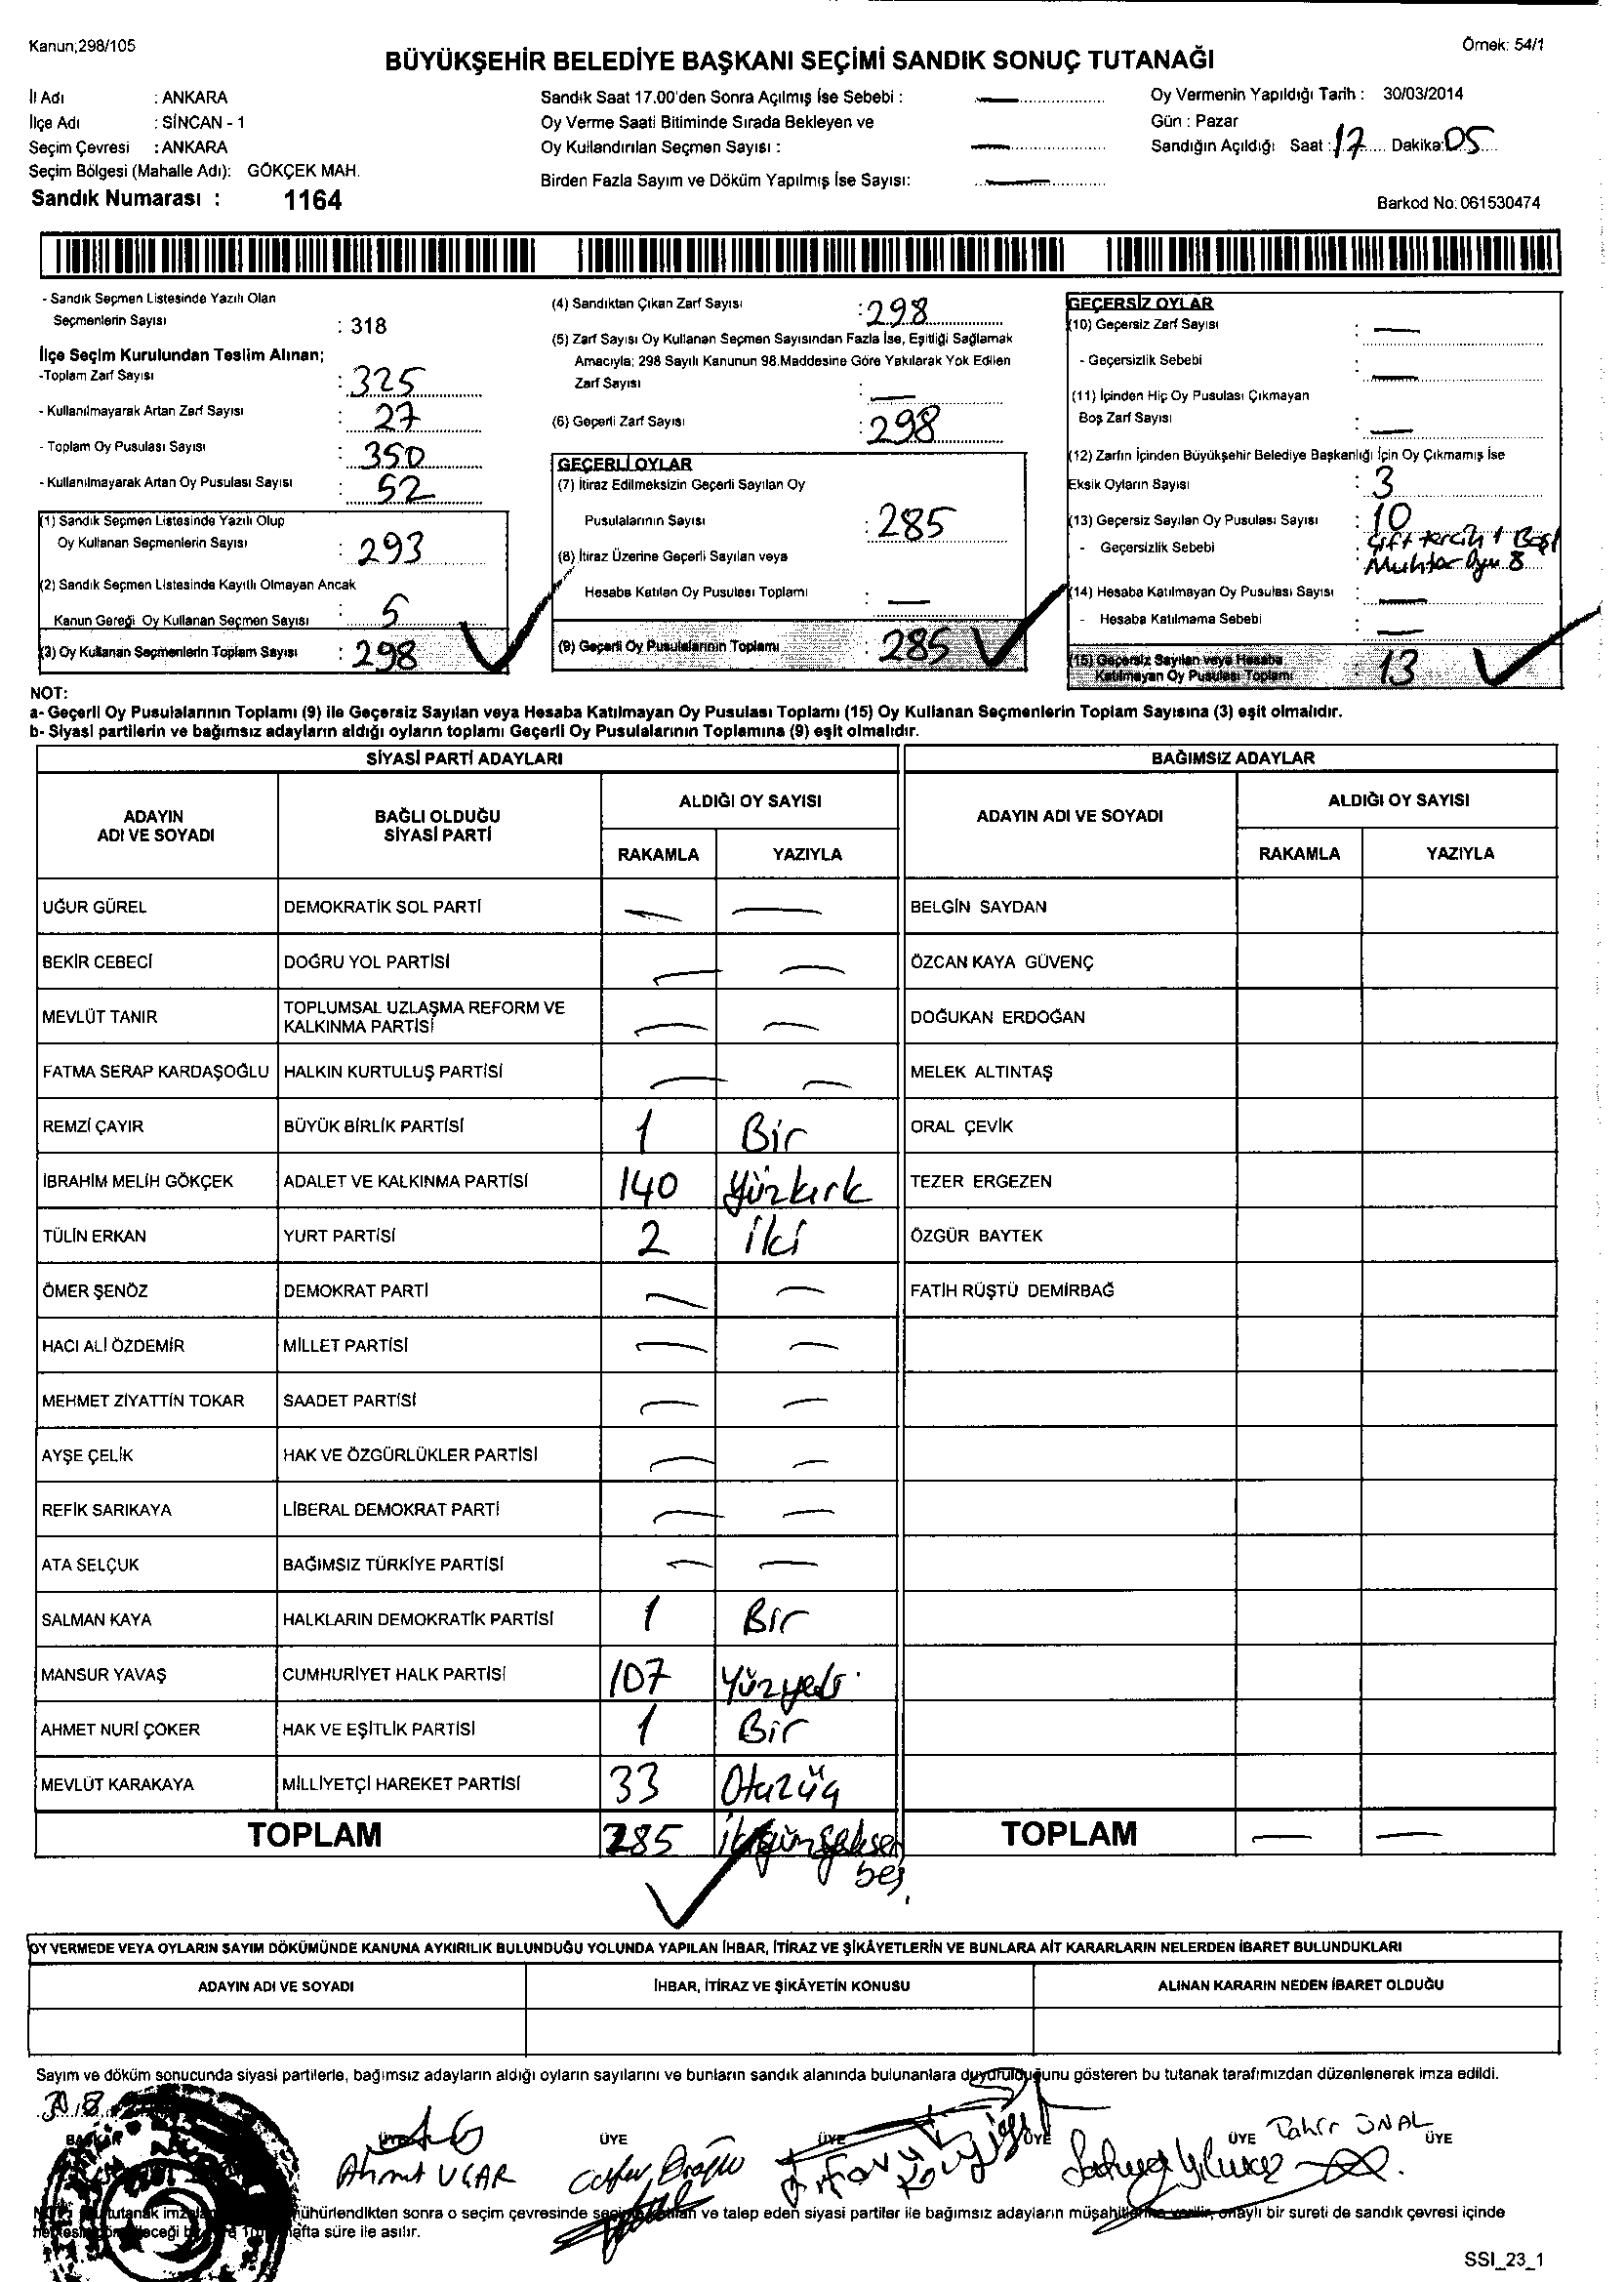 Kanun;298/105
Örnek: 54/1
BÜYÜKŞEHİR BELEDİYE BAŞKANI SEÇİMİ SANDIK SONUÇ TUTANAĞI
İl Adı : ANKARA
İlçe Adı : SİNCAN - 1
Seçim Çevresi : ANKARA
Seçim Bölgesi (Mahalle Adı): GÖKÇEK MAH.
Sandık Numarası : 1164
Sandık Saat 17.00'den Sonra Açılmış İse Sebebi :
Oy Verme Saati Bitiminde Sırada Bekleyen ve
Oy Kullandırılan Seçmen Sayısı :
Birden Fazla Sayım ve Döküm Yapılmış İse Sayısı:
Oy Vermenin Yapıldığı Tarih : 30/03/2014
Gün : Pazar
Sandığın Açıldığı Saat : 17 Dakika: 05
Barkod No: 061530474
- Sandık Seçmen Listesinde Yazılı Olan
Seçmenlerin Sayısı : 318
İlçe Seçim Kurulundan Teslim Alınan;
-Toplam Zarf Sayısı : 325
- Kullanılmayarak Artan Zarf Sayısı : 27
- Toplam Oy Pusulası Sayısı : 350
- Kullanılmayarak Artan Oy Pusulası Sayısı : 52
(1) Sandık Seçmen Listesinde Yazılı Olup
Oy Kullanan Seçmenlerin Sayısı : 293
(2) Sandık Seçmen Listesinde Kayıtlı Olmayan Ancak
Kanun Gereği Oy Kullanan Seçmen Sayısı : 5
(3) Oy Kullanan Seçmenlerin Toplam Sayısı : 298
(4) Sandıktan Çıkan Zarf Sayısı : 298
(5) Zarf Sayısı Oy Kullanan Seçmen Sayısından Fazla İse, Eşitliği Sağlamak
Amacıyla; 298 Sayılı Kanunun 98.Maddesine Göre Yakılarak Yok Edilen
Zarf Sayısı :
(6) Geçerli Zarf Sayısı : 298
GEÇERLİ OYLAR
(7) İtiraz Edilmeksizin Geçerli Sayılan Oy
Pusulalarının Sayısı : 285
(8) İtiraz Üzerine Geçerli Sayılan veya
Hesaba Katılan Oy Pusulası Toplamı :
(9) Geçerli Oy Pusulalarının Toplamı : 285
GEÇERSİZ OYLAR
(10) Geçersiz Zarf Sayısı :
- Geçersizlik Sebebi :
(11) İçinden Hiç Oy Pusulası Çıkmayan
Boş Zarf Sayısı :
(12) Zarfın İçinden Büyükşehir Belediye Başkanlığı İçin Oy Çıkmamış İse
Eksik Oyların Sayısı : 3
(13) Geçersiz Sayılan Oy Pusulası Sayısı : 10
- Geçersizlik Sebebi : Çift tercih 1 Boş 1
Muhtar Oyu 8
(14) Hesaba Katılmayan Oy Pusulası Sayısı :
- Hesaba Katılmama Sebebi :
(15) Geçersiz Sayılan veya Hesaba
Katılmayan Oy Pusulası Toplamı : 13
NOT:
a- Geçerli Oy Pusulalarının Toplamı (9) ile Geçersiz Sayılan veya Hesaba Katılmayan Oy Pusulası Toplamı (15) Oy Kullanan Seçmenlerin Toplam Sayısına (3) eşit olmalıdır.
b- Siyasi partilerin ve bağımsız adayların aldığı oyların toplamı Geçerli Oy Pusulalarının Toplamına (9) eşit olmalıdır.
SİYASİ PARTİ ADAYLARI BAĞIMSIZ ADAYLAR
ADAYIN ADI VE SOYADI BAĞLI OLDUĞU SİYASİ PARTİ ALDIĞI OY SAYISI ADAYIN ADI VE SOYADI ALDIĞI OY SAYISI
RAKAMLA YAZIYLA RAKAMLA YAZIYLA
UĞUR GÜREL DEMOKRATİK SOL PARTİ BELGİN SAYDAN
BEKİR CEBECİ DOĞRU YOL PARTİSİ ÖZCAN KAYA GÜVENÇ
MEVLÜT TANIR TOPLUMSAL UZLAŞMA REFORM VE KALKINMA PARTİSİ DOĞUKAN ERDOĞAN
FATMA SERAP KARDAŞOĞLU HALKIN KURTULUŞ PARTİSİ MELEK ALTINTAŞ
REMZİ ÇAYIR BÜYÜK BİRLİK PARTİSİ 1 Bir ORAL ÇEVİK
İBRAHİM MELİH GÖKÇEK ADALET VE KALKINMA PARTİSİ 140 Yüzkırk TEZER ERGEZEN
TÜLİN ERKAN YURT PARTİSİ 2 İki ÖZGÜR BAYTEK
ÖMER ŞENÖZ DEMOKRAT PARTİ FATİH RÜŞTÜ DEMİRBAĞ
HACI ALİ ÖZDEMİR MİLLET PARTİSİ
MEHMET ZİYATTİN TOKAR SAADET PARTİSİ
AYŞE ÇELİK HAK VE ÖZGÜRLÜKLER PARTİSİ
REFİK SARIKAYA LİBERAL DEMOKRAT PARTİ
ATA SELÇUK BAĞIMSIZ TÜRKİYE PARTİSİ
SALMAN KAYA HALKLARIN DEMOKRATİK PARTİSİ 1 Bir
MANSUR YAVAŞ CUMHURİYET HALK PARTİSİ 107 Yüzyedi
AHMET NURİ ÇOKER HAK VE EŞİTLİK PARTİSİ 1 Bir
MEVLÜT KARAKAYA MİLLİYETÇİ HAREKET PARTİSİ 33 Otuzüç
TOPLAM 285 İkiyüzseksen beş TOPLAM
OY VERMEDE VEYA OYLARIN SAYIM DÖKÜMÜNDE KANUNA AYKIRILIK BULUNDUĞU YOLUNDA YAPILAN İHBAR, İTİRAZ VE ŞİKÂYETLERİN VE BUNLARA AİT KARARLARIN NELERDEN İBARET BULUNDUKLARI
ADAYIN ADI VE SOYADI İHBAR, İTİRAZ VE ŞİKÂYETİN KONUSU ALINAN KARARIN NEDEN İBARET OLDUĞU
Sayım ve döküm sonucunda siyasi partilerle, bağımsız adayların aldığı oyların sayılarını ve bunların sandık alanında bulunanlara duyurulduğunu gösteren bu tutanak tarafımızdan düzenlenerek imza edildi.
ÜYE ÜYE ÜYE ÜYE ÜYE
Tahir ÜNAL
Ahmet UÇAR
ühürlendikten sonra o seçim çevresinde ve talep eden siyasi partiler ile bağımsız adayların müşahitlerine verilir, onaylı bir sureti de sandık çevresi içinde
hafta süre ile asılır.
SSI_23_1